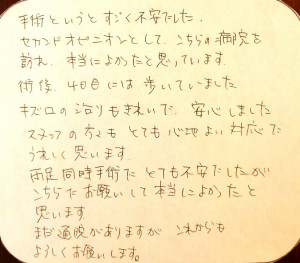 手術というとすごく不安でした.
セカンドオピニオンとして、こちらの病院を
訪れ、本当によかったと思っています.
術後、4日目には歩いていました
キズ口の治りもきれいで、安心しました
スタッフの方々もとても心地よい対応で
うれしく思います.
両足同時手術でとても不安でしたが
こちらにお願いして本当によかったと
思います
まだ通院がありますがこれからも
よろしくお願いします。